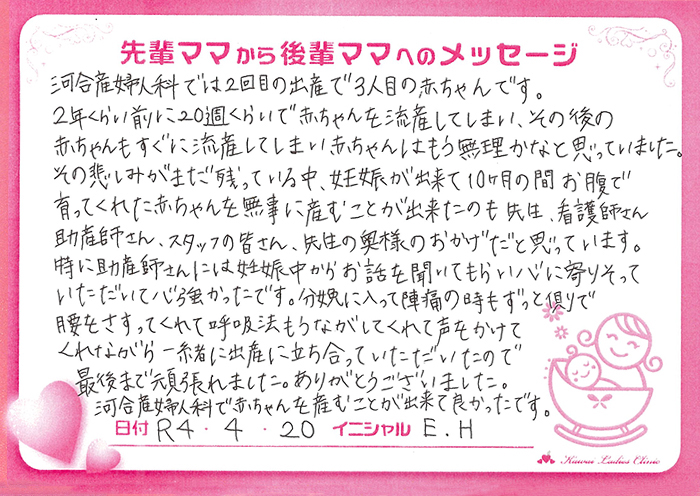 先輩ママから後輩ママへのメッセージ
河合産婦人科では2回目の出産で3人目の赤ちゃんです。
2年くらい前に20週くらいで赤ちゃんを流産してしまい、その後の
赤ちゃんもすぐに流産してしまい赤ちゃんはもう無理かなと思っていました。
その悲しみがまだ残っている中、妊娠が出来て10ヶ月の間お腹で
育ってくれた赤ちゃんを無事に産むことが出来たのも先生、看護師さん
助産師さん、スタッフの皆さん、先生の奥様のおかげだと思っています。
特に助産師さんには妊娠中からお話を聞いてもらい心に寄りそって
いただいて心強かったです。分娩に入って陣痛の時もずっと側りで
腰をさすってくれて呼吸法もうながしてくれて声をかけて
くれながら一緒に出産に立ち合っていただいたので
最後まで頑張れました。ありがとうございました。
河合産婦人科で赤ちゃんを産むことが出来て良かったです。
日付 R4・4・20 イニシャル E.H
Kawai Ladies Clinic